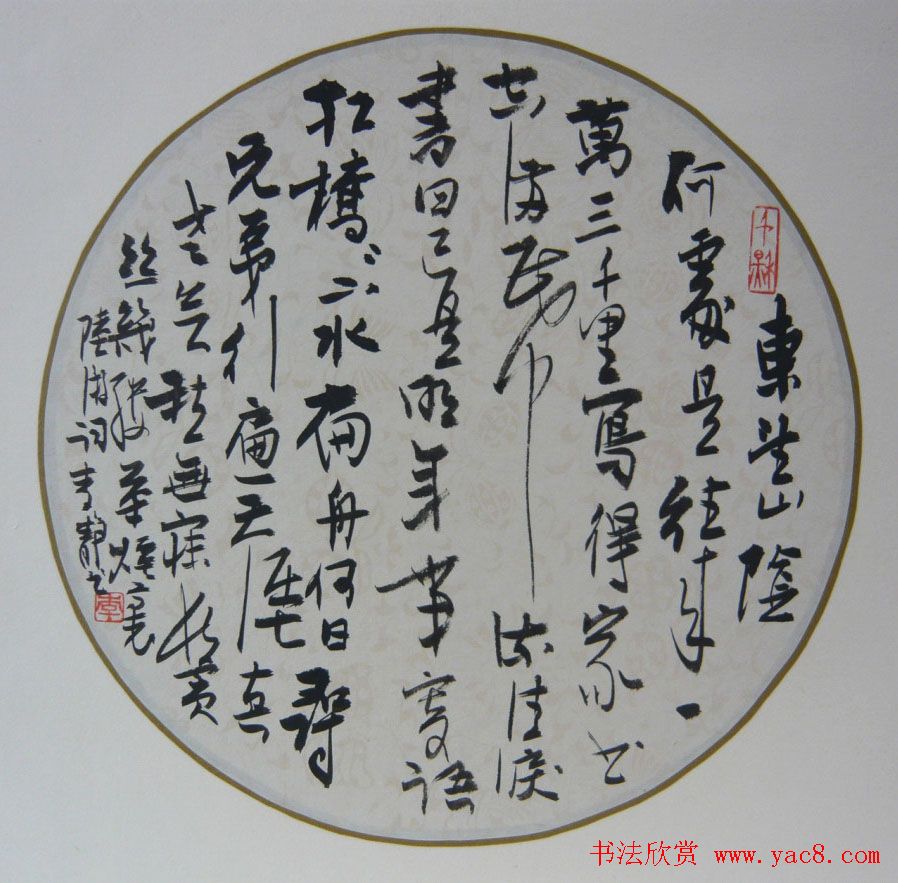 東望山陰
何處是往來一
萬三千里寫得家书
空滿帋流清淚
書回已是明年事寄語
紅橋〻下水扁舟何日尋
兄弟行遍天涯真
老矣愁無寐鬢
絲幾縷茶煙裏
陸游詞李靜书
书法欣赏 www.yac8.com